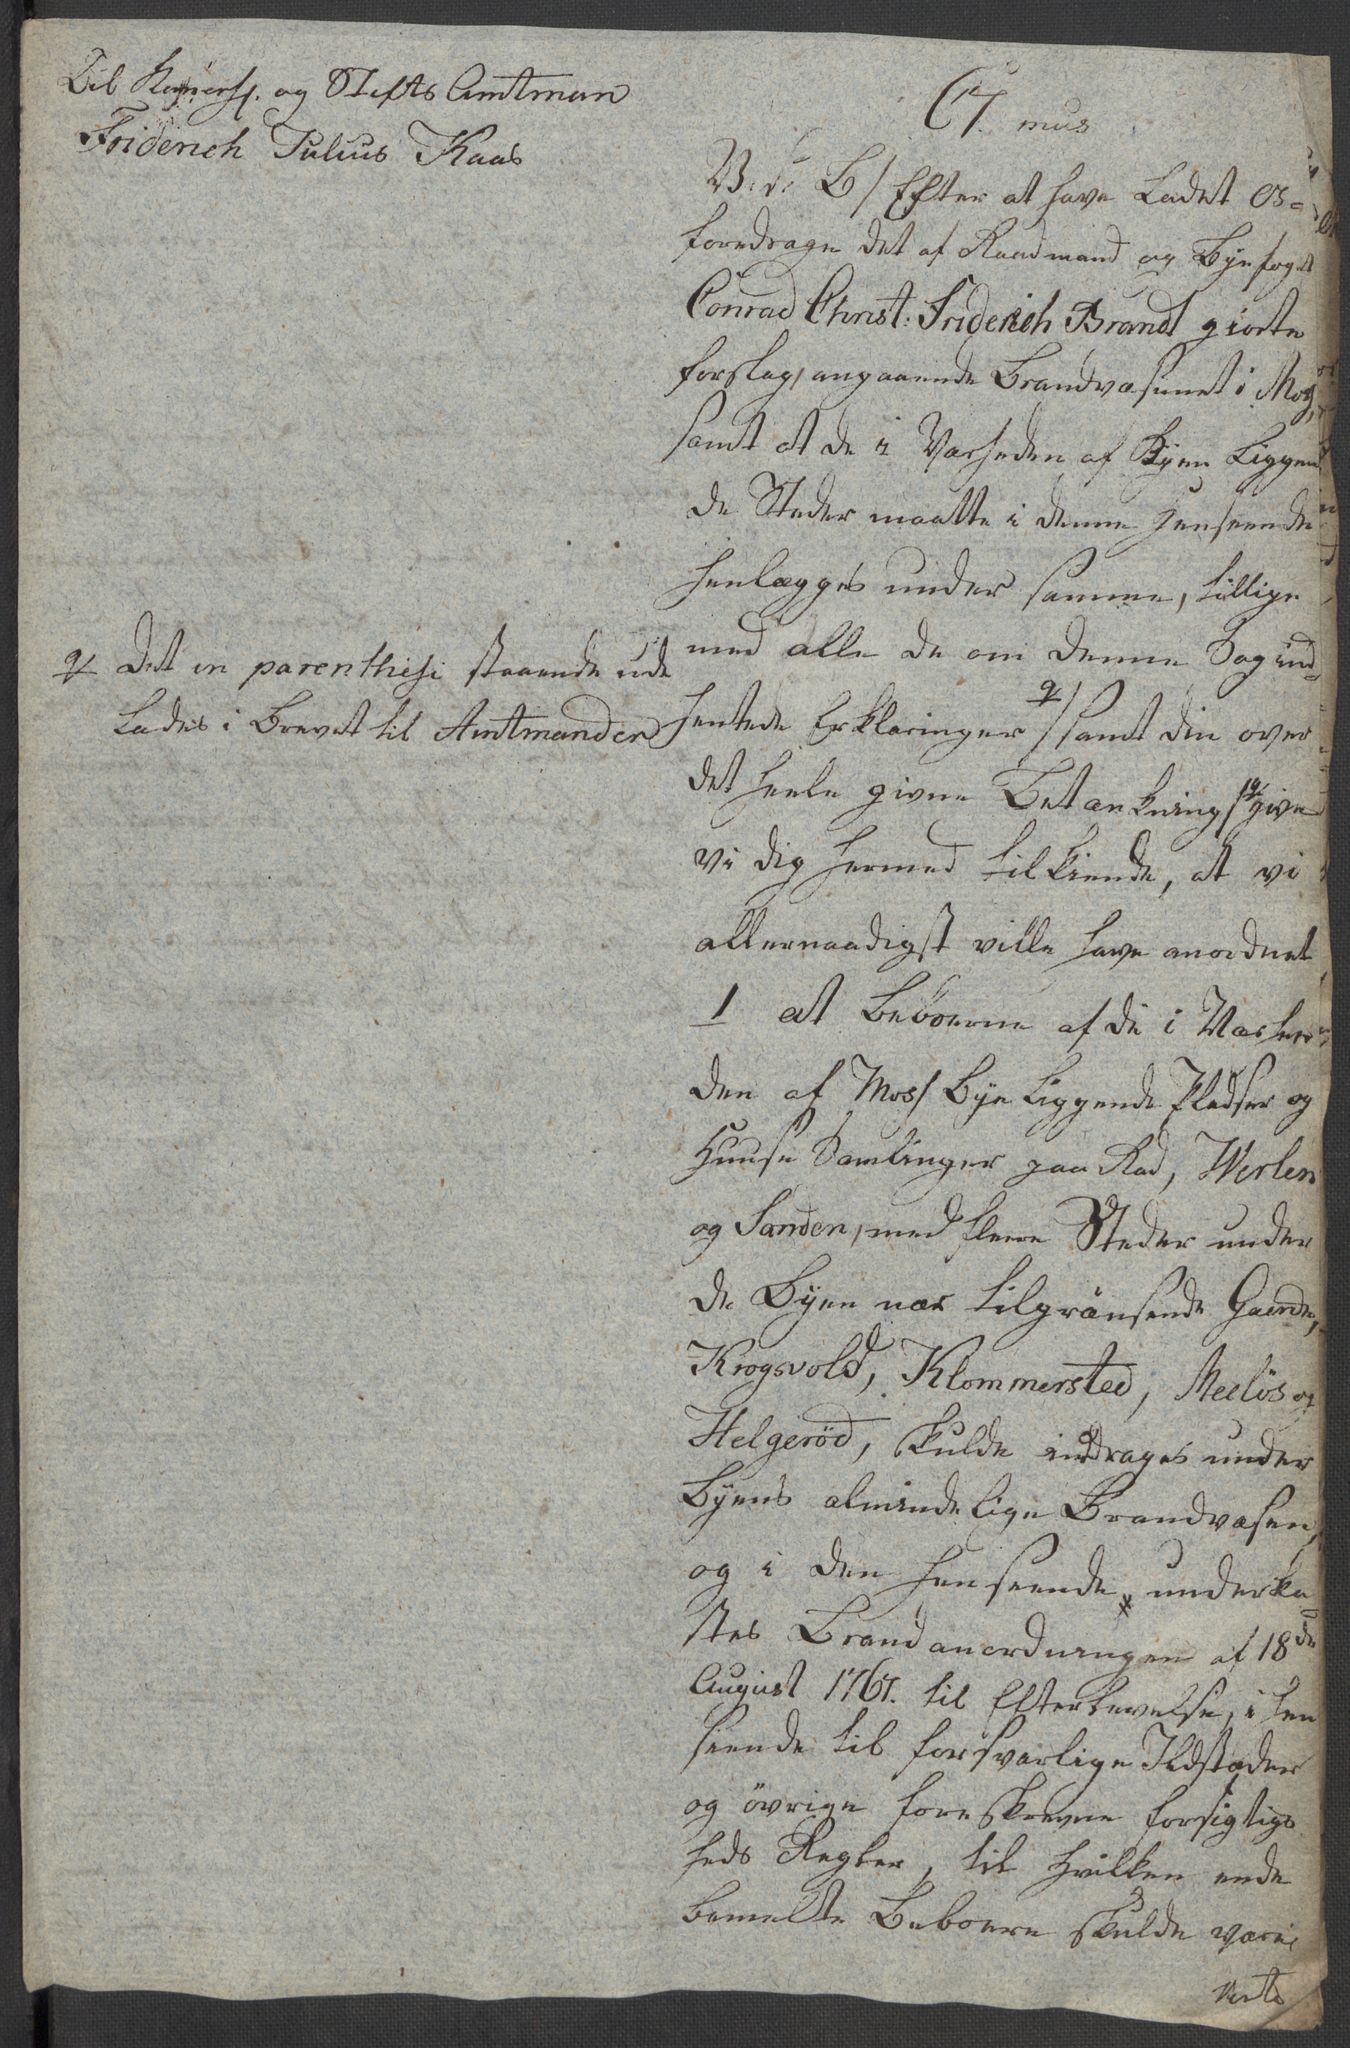 Til Kammerh. og Stifts Amtman
Friderich Julius Kaas
C 7 mus
V. s. B / Efter at have Ladet os
foredrage det af Raadmand og Byefoget
Conrad Christ: Friderich Brandt giorte
forslag, angaaende Brandvæsenet i Moss,
samt at de i Nærheden af Byen Liggen
de Steder maatte i denne henseende
henlægges under samme, tillige
med alle de om denne Sag ind-
hentede Erklæringer /samt din over
det heele givne Betænkning/ give
vi dig hermed tilkiende, at vi
allernaadigst ville have anordnet
1 at Beboerne af de i Nærhee
den af Moss Bye Liggende Pladser og
Huuse Samlinger paa Rad, Werlen
og Sanden, med flere Steder under
de Byen nær tilgrænsende Gaarde,
Krogsvold, Klommersted, Meeløs og
Helgerød, skulde inddrages under
Byens almindelige Brandvæsen,
og i den henseende underka
stes Brandanordningen af 18de
August 1767. til Efterlevelse, i hen
seende til forsvarlige Ildstæder
og øvrige foreskrevne forsigtigs
heds Regler, til hvilken ende
bemelte Beboere skulde være
verte
Det in parenthesi staaende ude
Lades i Brevet til Amtmanden